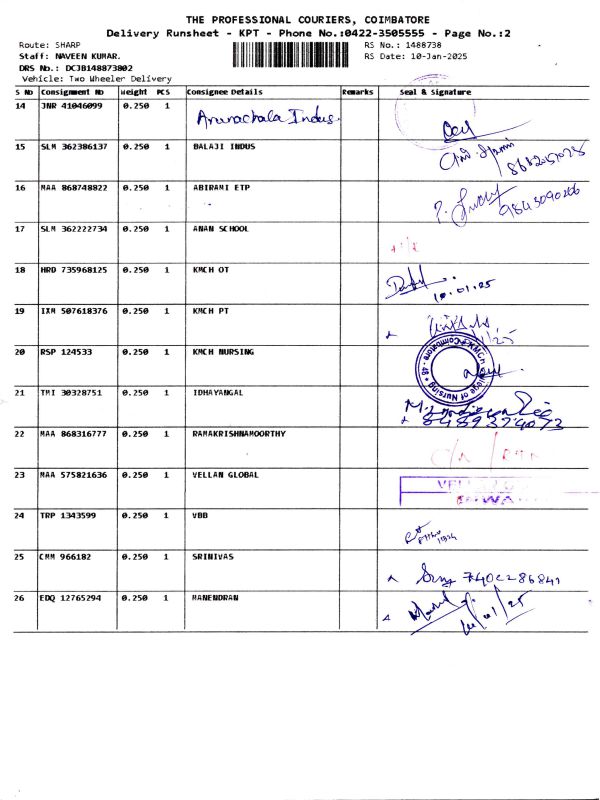 THE PROFESSIONAL COURIERS, COIMBATORE
Delivery Runsheet - KPT - Phone No.:0422-3505555 - Page No.:2
Route: SHARP RS No.: 1488738
Staff: NAVEEN KUMAR. RS Date: 10-Jan-2025
DRS No.: DCJB148873802
Vehicle: Two Wheeler Delivery
S No Consignment No Weight PCS Consignee Details Remarks Seal & Signature
14 JNR 41046099 0.250 1 Arunachala Indus.
15 SLM 362386137 0.250 1 BALAJI INDUS
16 MAA 868748822 0.250 1 ABIRAMI ETP 9843090266
17 SLM 362222734 0.250 1 ANAN SCHOOL
18 HRD 735968125 0.250 1 KMCH OT 10.01.25
19 IXM 507618376 0.250 1 KMCH PT
20 RSP 124533 0.250 1 KMCH NURSING
KMCH College of Nursing
21 TMI 30328751 0.250 1 IDHAYANGAL
8489374073
22 MAA 868316777 0.250 1 RAMAKRISHNAMOORTHY
23 MAA 575821636 0.250 1 VELLAN GLOBAL
24 TRP 1343599 0.250 1 VBB
25 CMM 966182 0.250 1 SRINIVAS 7402286841
26 EDQ 12765294 0.250 1 MANENDRAN